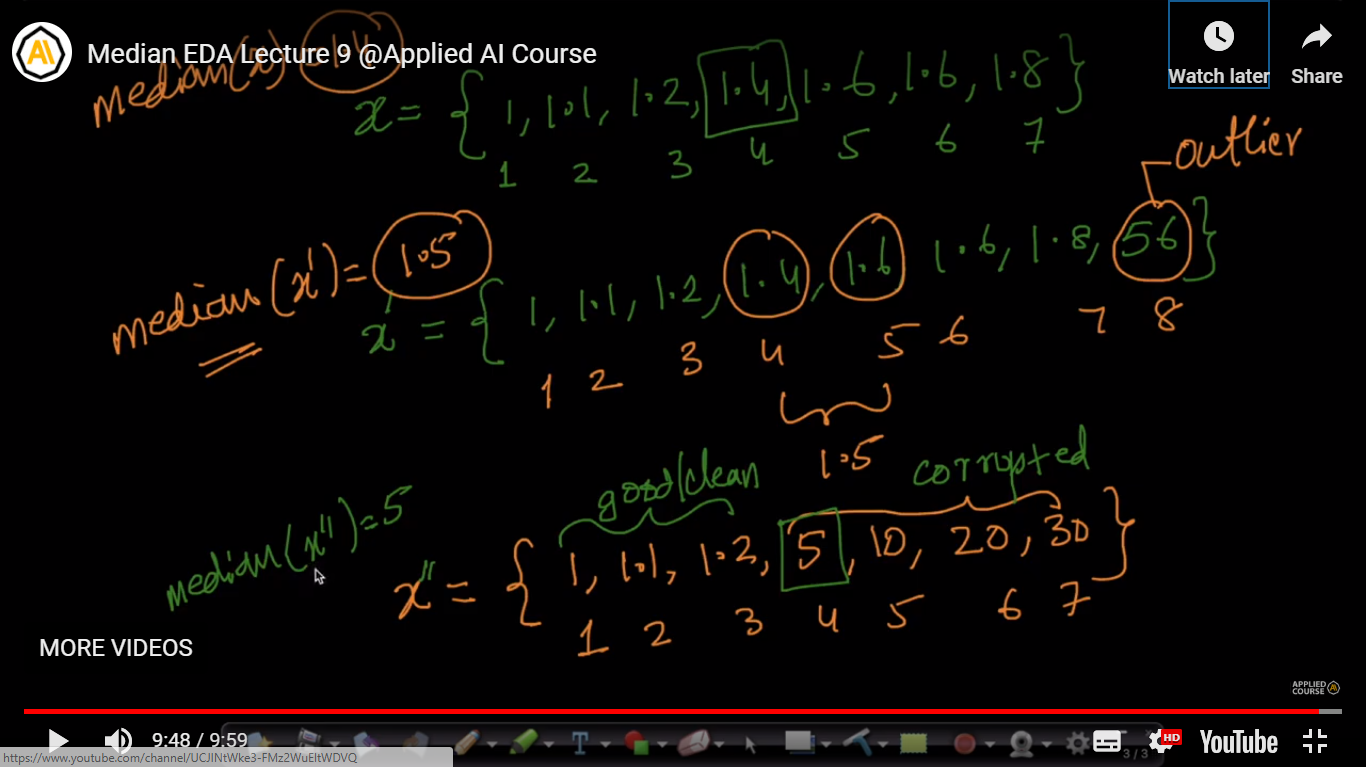 Median EDA Lecture 9 @Applied AI Course
Watch later
Share
median(x) 1.4
x = { 1, 1.1, 1.2, 1.4, 1.6, 1.6, 1.8 }
1 2 3 4 5 6 7
outlier
median(x') = 1.5
x' = { 1, 1.1, 1.2, 1.4, 1.6 1.6, 1.8, 56 }
1 2 3 4 5 6 7 8
1.5
good/clean
corrupted
median(x'') = 5
x'' = { 1, 1.1, 1.2, 5, 10, 20, 30 }
1 2 3 4 5 6 7
MORE VIDEOS
APPLIED
COURSE
9:48 / 9:59
3 / 3
HD
YouTube
https://www.youtube.com/channel/UCJINtWke3-FMz2WuEltWDVQ